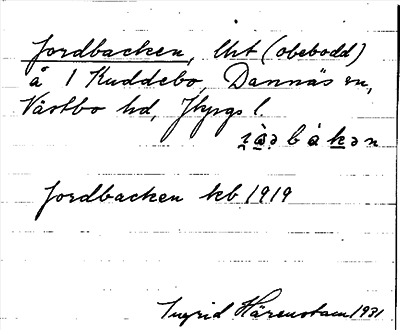 Jordbacken, lht (obebodd)
å 1 Kuddebo, Dannäs sn,
Västbo hd, Jkpgs l.
bàkən
Jordbacken kb 1919
Ingrid Härenstam 1931